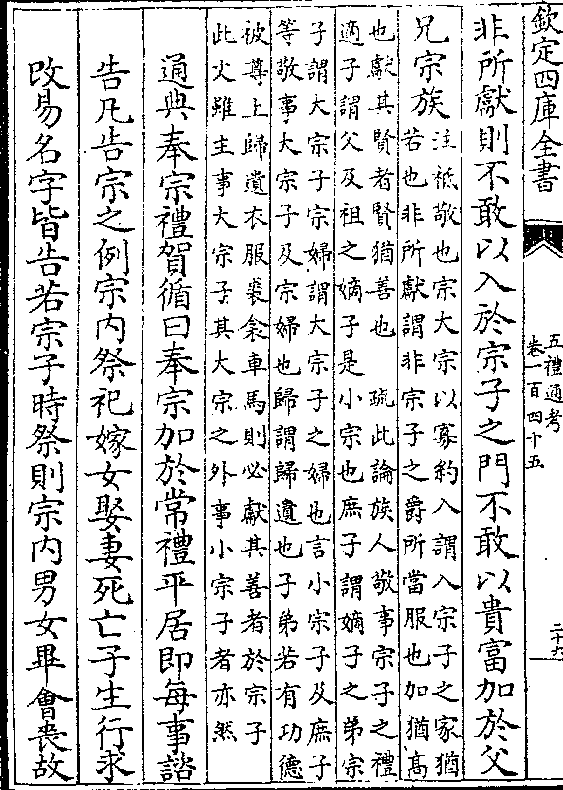 欽定四庫全書
五禮通考
卷一百四十五
二十九
非所獻則不敢以入於宗子之門不敢以貴富加於父
兄宗族
注祗敬也宗大宗以寡約入謂入宗子之家猶
若也非所獻謂非宗子之爵所當服也加猶髙
也獻其賢者賢猶善也 疏此論族人敬事宗子之禮
適子謂父及祖之嫡子是小宗也庶子謂嫡子之弟宗
子謂大宗子宗婦謂大宗子之婦也言小宗子及庶子
等敬事大宗子及宗婦也歸謂歸遺也子弟若有功德
被尊上歸遺衣服裘衾車馬則必獻其善者於宗子
此文雖主事大宗子其大宗之外事小宗子者亦然
通典奉宗禮賀循曰奉宗加於常禮平居即每事諮
告凡告宗之例宗内祭祀嫁女娶妻死亡子生行求
改易名字皆告若宗子時祭則宗内男女畢會喪故